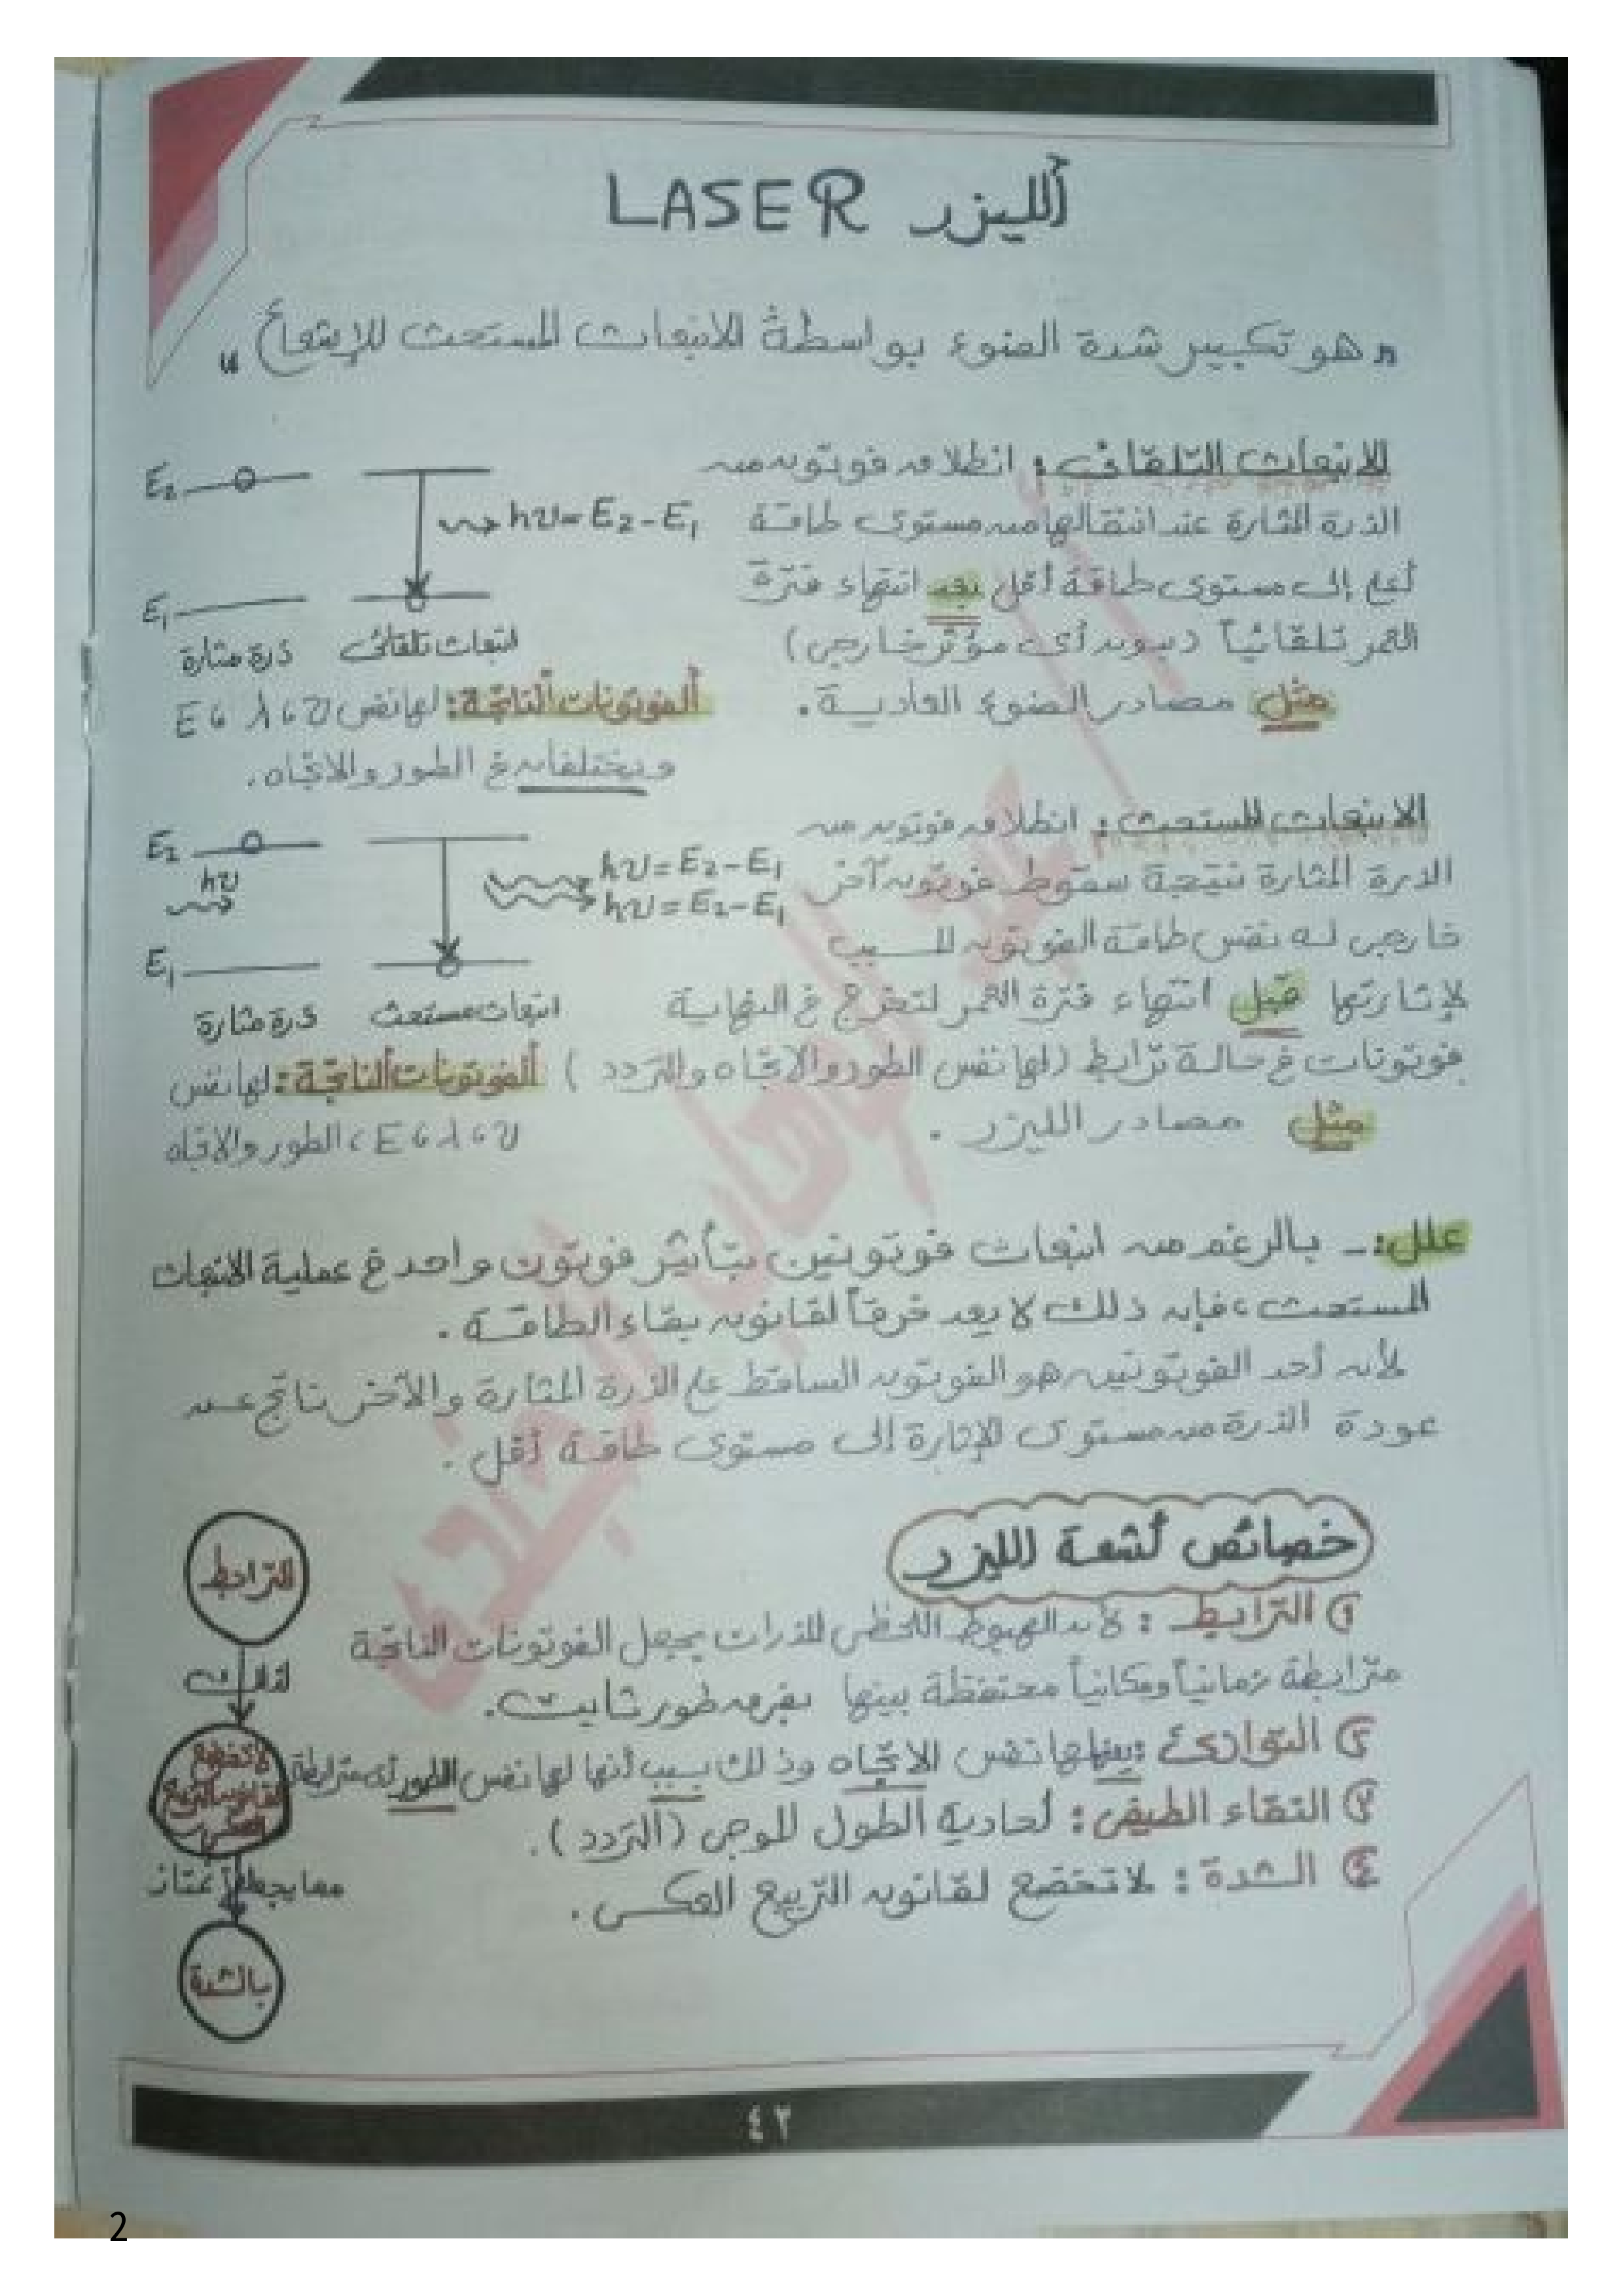 الليزر LASER
"هو تكبير شدة الضوء بواسطة الانبعاث المستحث للإشعاع"
الانبعاث التلقائى: انطلاق فوتون من
الذرة المثارة عند انتقالها من مستوى طاقة
أعلى إلى مستوى طاقة أقل بعد انتهاء فترة
العمر تلقائياً (بدون أى مؤثر خارجى)
مثل مصادر الضوء العادية.
E2
hν = E2 - E1
E1
ذرة مثارة انبعاث تلقائى
الفوتونات الناتجة: لها نفس ν ، λ ، E
ويختلفان فى الطور والاتجاه.
الانبعاث المستحث: انطلاق فوتون من
الذرة المثارة نتيجة سقوط فوتون آخر
خارجى له نفس طاقة الفوتون المسبب
لإثارتها قبل انتهاء فترة العمر لتخرج فى النهاية
فوتونات فى حالة ترابط (لها نفس الطور والاتجاه والتردد)
مثل مصادر الليزر.
E2
hν
hν = E2 - E1
hν = E2 - E1
E1
ذرة مثارة انبعاث مستحث
الفوتونات الناتجة: لها نفس
ν ، λ ، E ، الطور والاتجاه
علل:- بالرغم من انبعاث فوتونين بتأثير فوتون واحد فى عملية الانبعاث
المستحث، فإن ذلك لا يعد خرقاً لقانون بقاء الطاقة.
لأن أحد الفوتونين هو الفوتون الساقط على الذرة المثارة والآخر ناتج عن
عودة الذرة من مستوى الإثارة إلى مستوى طاقة أقل.
خصائص أشعة الليزر
① الترابط: لأن الهبوط اللحظى للذرات يجعل الفوتونات الناتجة
مترابطة زمانياً ومكانياً محتفظة بينها بفرق طور ثابت.
② التوازى: لها نفس الاتجاه وذلك بسبب أنها لها نفس الطور أى مترابطة
③ النقاء الطيفى: أحادية الطول الموجى (التردد).
④ الشدة: لا تخضع لقانون التربيع العكسى.
الترابط
لذلك
لا تخضع
لقانون التربيع
العكسى
مما يجعلها تمتاز
بالشدة
٤٢
2